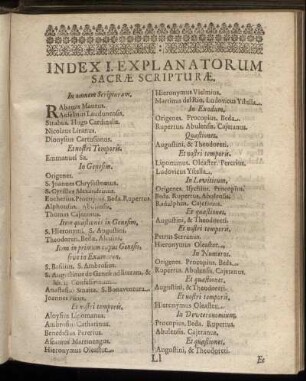 INDEX I. EXPLANATORUM
SACRÆ SCRIPTURÆ.
In omnem Scripturam.
Rabanus Maurus.
Anselmus Laudunensis.
Strabus. Hugo Cardinalis.
Nicolaus Liranus.
Dionysius Cartusianus.
Et nostri Temporis.
Emmanuel Sa.
In Genesim.
Origenes.
S. Joannes Chrysostomus.
S. Cyrillus Alexandrinus.
Eucherius. Procopius. Beda. Rupertus.
Alphonsus
Thomas Cajetanus.
Item quæstiones in Genesim,
S. Hieronymi. S. Augustini.
Theodoreti. Beda. Alcuini.
Item in primum caput Genesis,
sive in Exameron.
S. Basilius. S. Ambrosius.
S. Augustinus de Genesi ad litteram, &
lib. Confessionum.
Anastasius Sinaita. S. Bonaventura.
Joannes
Et nostri temporis,
Aloysius Lipomanus.
Ambrosius Catharinus.
Benedictus Pererius.
Ascanius Martinengus.
Hieronymus Oleaster.
Hieronymus Vielmius.
Martinus del Rio. Ludovicus Ystella.
In Exodum,
Origenes. Procopius. Beda.
Rupertus. Abulensis. Cajetanus.
Quæstiones,
Augustini, & Theodoreti.
Et nostri temporis.
Lipomanus. Oleaster. Pererius.
Ludovicus Ystella.
In Leviticum,
Origenes. Isychius. Procopius.
Beda. Rupertus. Abulensis.
Radulphus. Cajetanus.
Et quæstiones,
Augustini, & Theodoreti.
Et nostri temporis
Petrus Serranus.
Hieronymus Oleaster.
In Numeros.
Origenes. Procopius. Beda.
Rupertus. Abulensis. Cajetanus.
Et quæstiones,
Augustini, & Theodoreti.
Et nostri temporis,
Hieronymus Oleaster.
In Deuteronomium.
Procopius. Beda. Rupertus
Abulensis. Cajetanus.
Et quæstiones,
Augustini, & Theodoreti.
Ll
Et